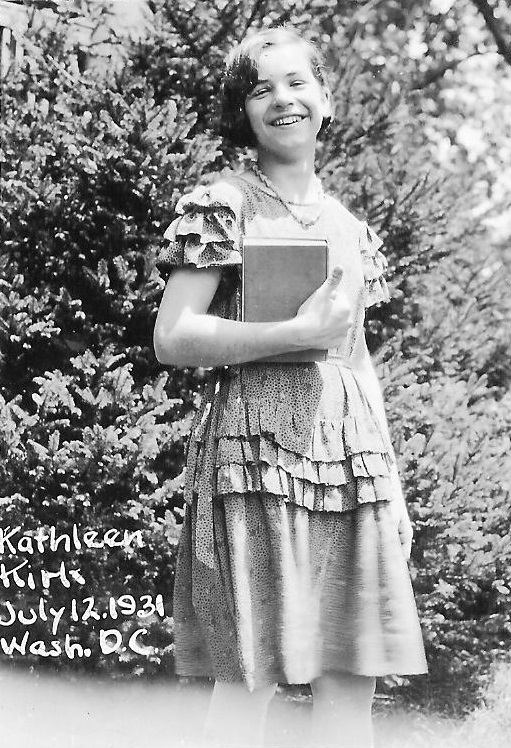 Kathleen
Kirk
July 12.1931
Wash. D.C.